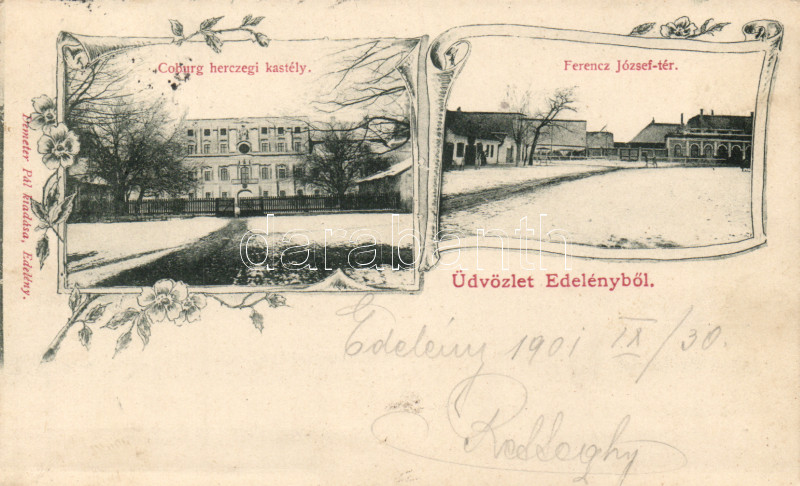 Coburg herczegi kastély.
Ferencz József-tér.
Demeter Pál kiadása, Edelény.
darabanth
Üdvözlet Edelényből.
Edelény 1901 IX/30.